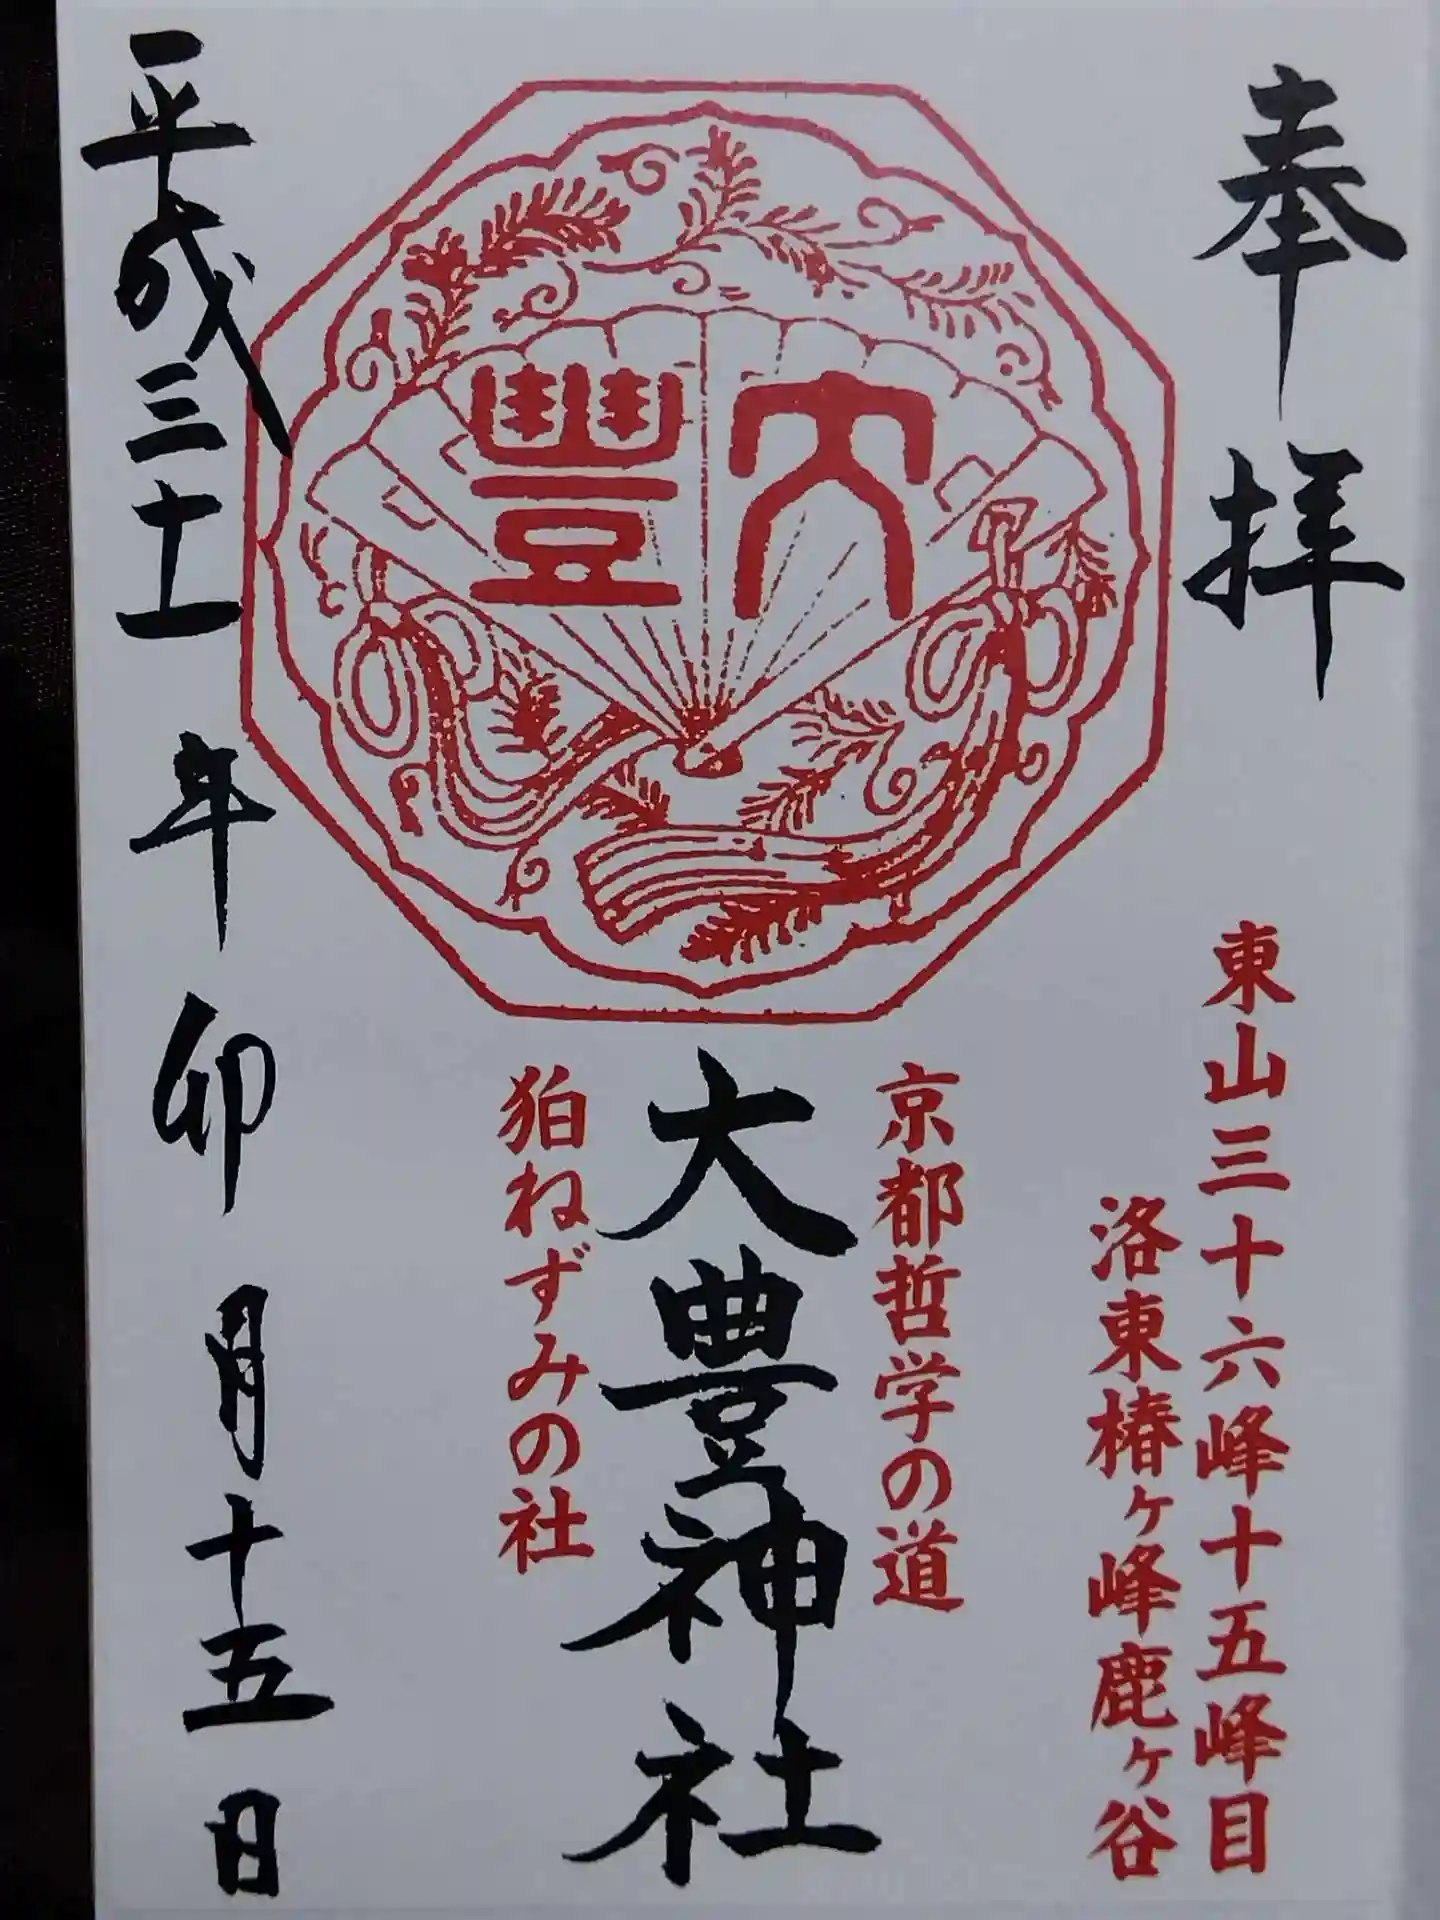 奉拝
東山三十六峰十五峰目
洛東椿ヶ峰鹿ヶ谷
大豐
京都哲学の道
大豊神社
狛ねずみの社
平成三十一年卯月十五日